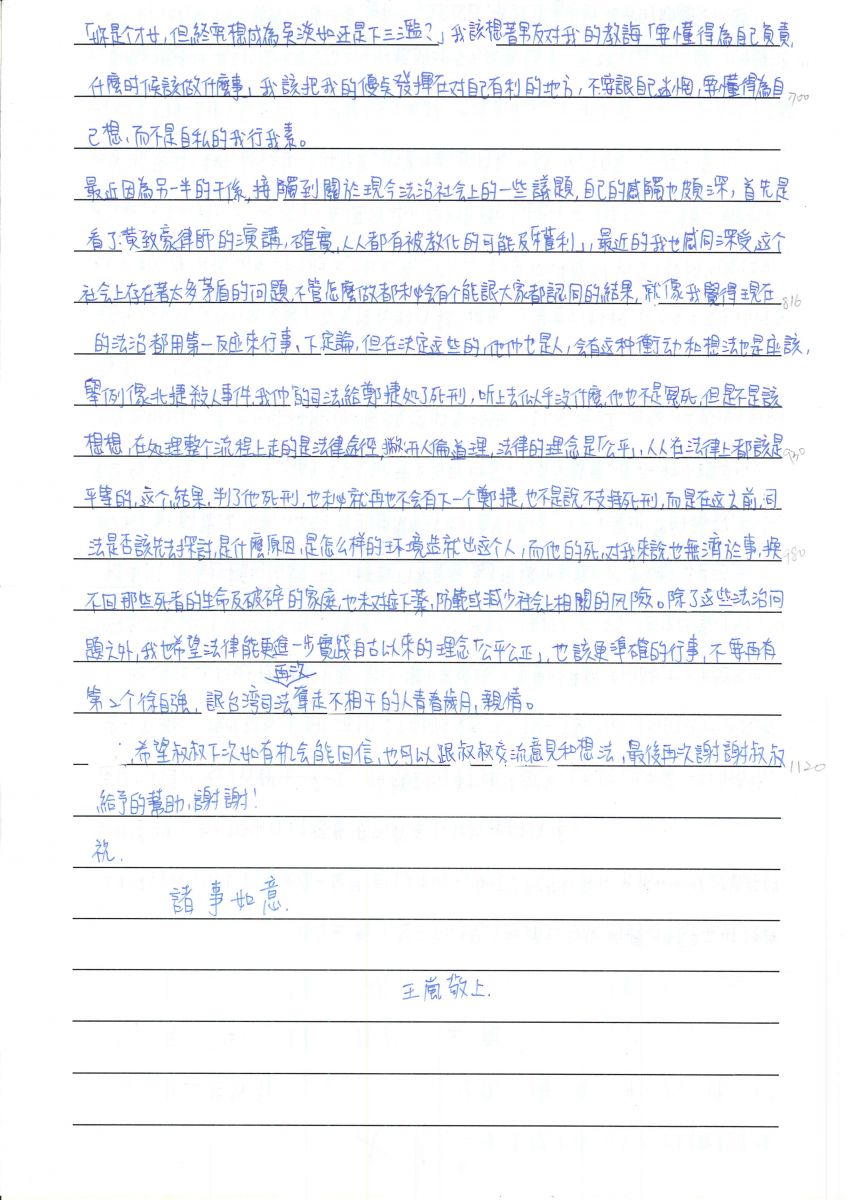 「妳是个才女，但終究想成為吳淡如还是下三濫？」我該想著男友对我的教誨「要懂得為自己負責，
什麼时候該做什麼事」我該把我的優矣發揮在对自己有利的地方，不要讓自己迷惘，要懂得為自 700
己想，而不是自私的我行我素。
最近因為另一半的干係，接觸到關於現今法治社会上的一些議題，自己的感觸也頗深，首先是
看了黄致豪律師的演講，確實，人人都有被教化的可能及「權利」，最近的我也感同深受，这个
社会上存在著太多茅盾的问題，不管怎麼做都未必会有个能讓大家都認同的結果，就像我覺得現在 816
的法治都用第一反应来行事、下定論，但在決定这些的，他们也是人，会有这种衝动和想法也是应該，
舉例像北捷殺人事件，我们的司法給鄭捷処了死刑，听上去似乎没什麼，他也不是冤死，但是不是該
想想，在処理整个流程上走的是法律途徑，撇开人倫道理，法律的理念是「公平」，人人在法律上都該是 930
平等的，这个結果，判了他死刑，也未必就再也不会有下一个鄭捷，也不是說不支持死刑，而是在这之前，司
法是否該先去探討，是什麼原因，是怎么样的环境造就出这个人，而他的死，对我来說也無濟於事，换 980
不回那些死者的生命及破碎的家庭，也未对症下薬，防範或減少社会上相關的风险。除了这些法治问
題之外，我也希望法律能更進一步實踐自古以來的理念「公平公正」，也該更準確的行事，不要再有
第2个徐自強，讓台湾司法再次奪走不相干的人青春歲月，親情。
希望叔叔下次如有机会能回信，也可以跟叔叔交流意見和想法，最後再次謝謝叔叔 1120
給予的幫助，謝謝！
祝.
諸事如意.
王嵐敬上.